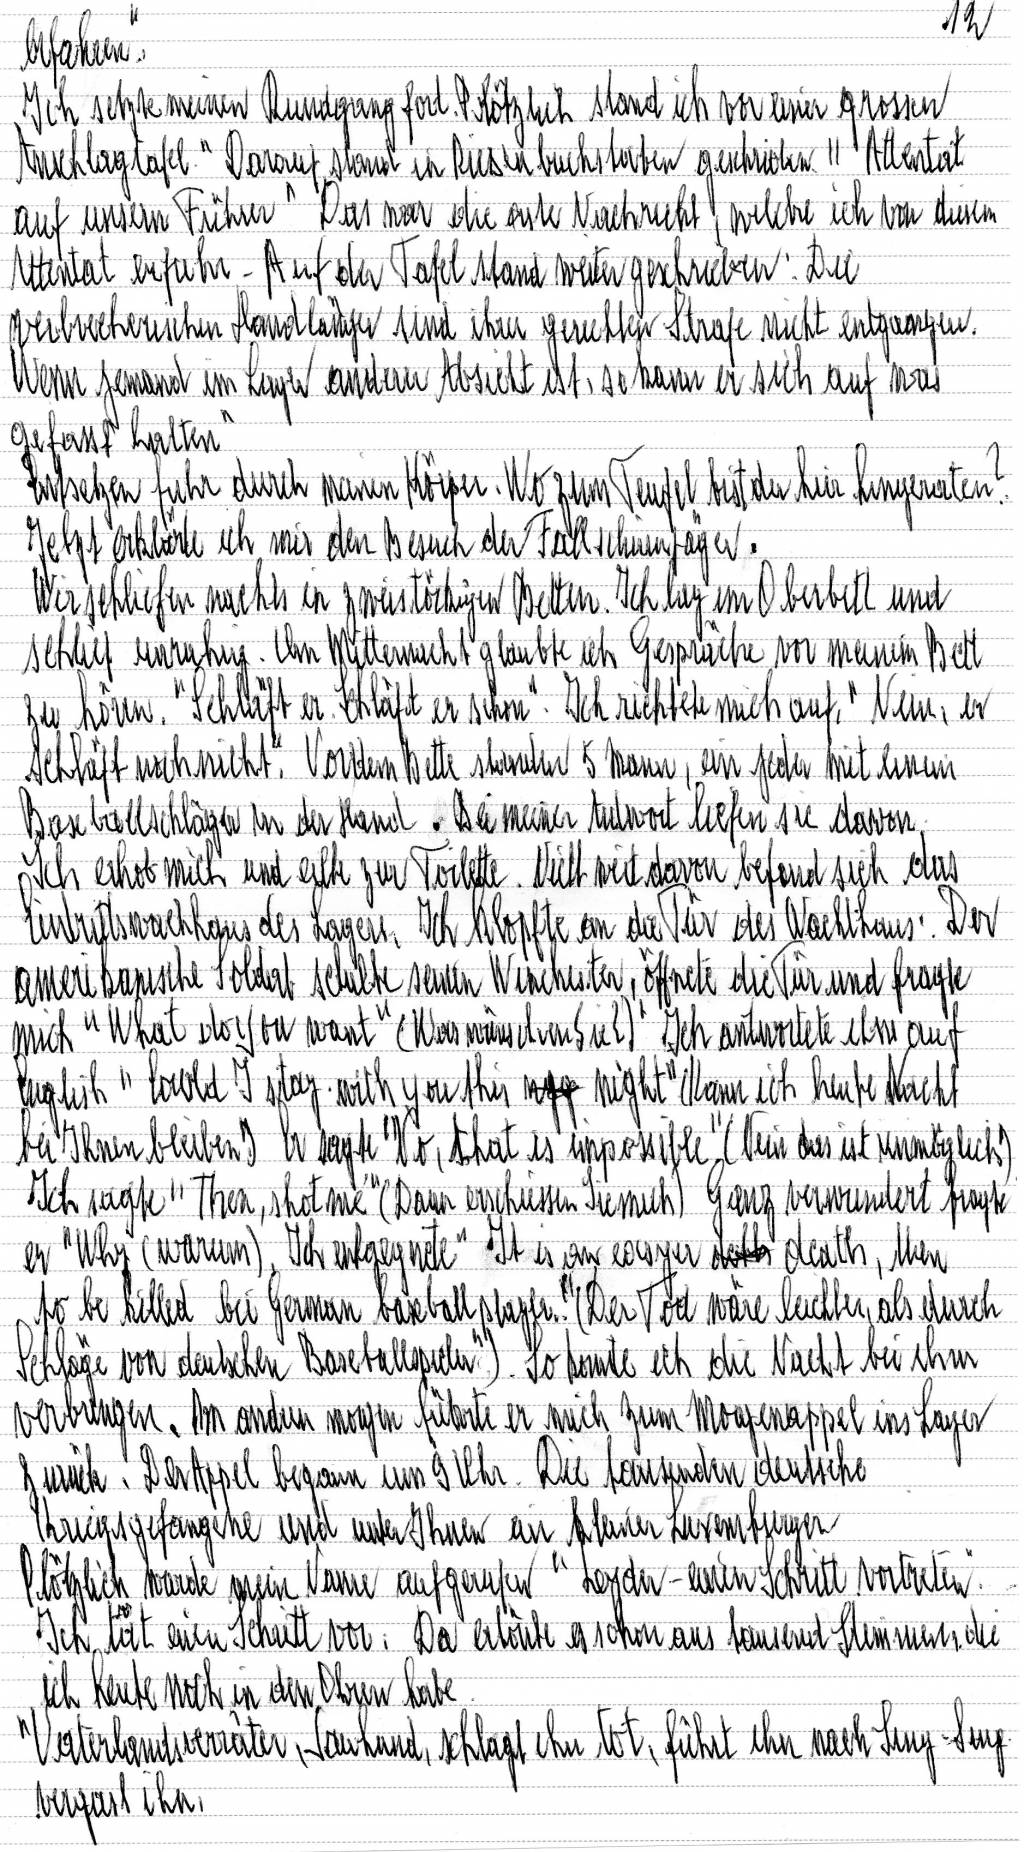 12
erfahren".
Ich setzte meinen Rundgang fort. Plötzlich stand ich vor einer grossen
Anschlagtafel." Darauf stand in Riesenbuchstaben geschrieben !! Attentat
auf unsern Führer" Das war die erste Nachricht, welche ich von diesem
Attentat erfuhr - Auf der Tafel stand weiter geschrieben: Die
verbrecherischen Handlänger sind ihrer gerechten Strafe nicht entgangen.
Wenn jemand im Lager anderer Absicht ist, so kann er sich auf was
gefasst halten"
Entsetzen fuhr durch meinen Körper. Wo zum Teufel bist du hier hingeraten?
Jetzt erklärte ich mir den Besuch der Fallschirmjäger.
Wir schliefen nachts in zweistöckigen Betten. Ich lag im Oberbett und
schlief unruhig. Um Mitternacht glaubte ich Gespräche vor meinem Bett
zu hören. "Schläft er. Schläft er schon". Ich richtete mich auf, "Nein, er
schläft noch nicht". Vor dem Bette standen 5 Mann, ein jeder mit einem
Baseballschläger in der Hand. Bei meiner Antwort liefen sie davon.
Ich erhob mich und eilte zur Toilette. Nicht weit davon befand sich das
Eintrittswachhaus des Lagers. Ich klopfte an die Tür des Wachthaus. Der
amerikanische Soldat schulte seinen Winchester, öffnete die Tür und fragte
mich "What do you want" (Was wünschen Sie?) Ich antwortete ihm auf
English "Could I stay with you this night" (Kann ich heute Nacht
bei Ihnen bleiben) Er sagte "No, that is impossible" (Nein das ist unmöglich)
Ich sagte "Then, shot me" (Dann erschiessen Sie mich) Ganz verwundert fragte
er "Why (warum). Ich entgegnete" It is an easyer death, then
to be killed bei German baseball player." (Der Tod wäre leichter, als durch
Schläge von deutschen Baseballspieler"). So konnte ich die Nacht bei ihm
verbringen. Am andern morgen führte er mich zum Morgenappel ins Lager
zurück. Der Appel begann um 9 Uhr. Die tausenden deutsche
Kriegsgefangene und unter Ihnen ein kleiner Luxemburger
Plötzlich wurde mein Name aufgerufen " - einen Schritt vortreten".
Ich tat einen Schritt vor. Da ertönte es schon aus tausend Stimmen, die
ich heute noch in den Ohren habe.
"Vaterlandsverräter, Sauhund, schlagt ihn tot, führt ihn nach Sing-Sing
vergast ihn.